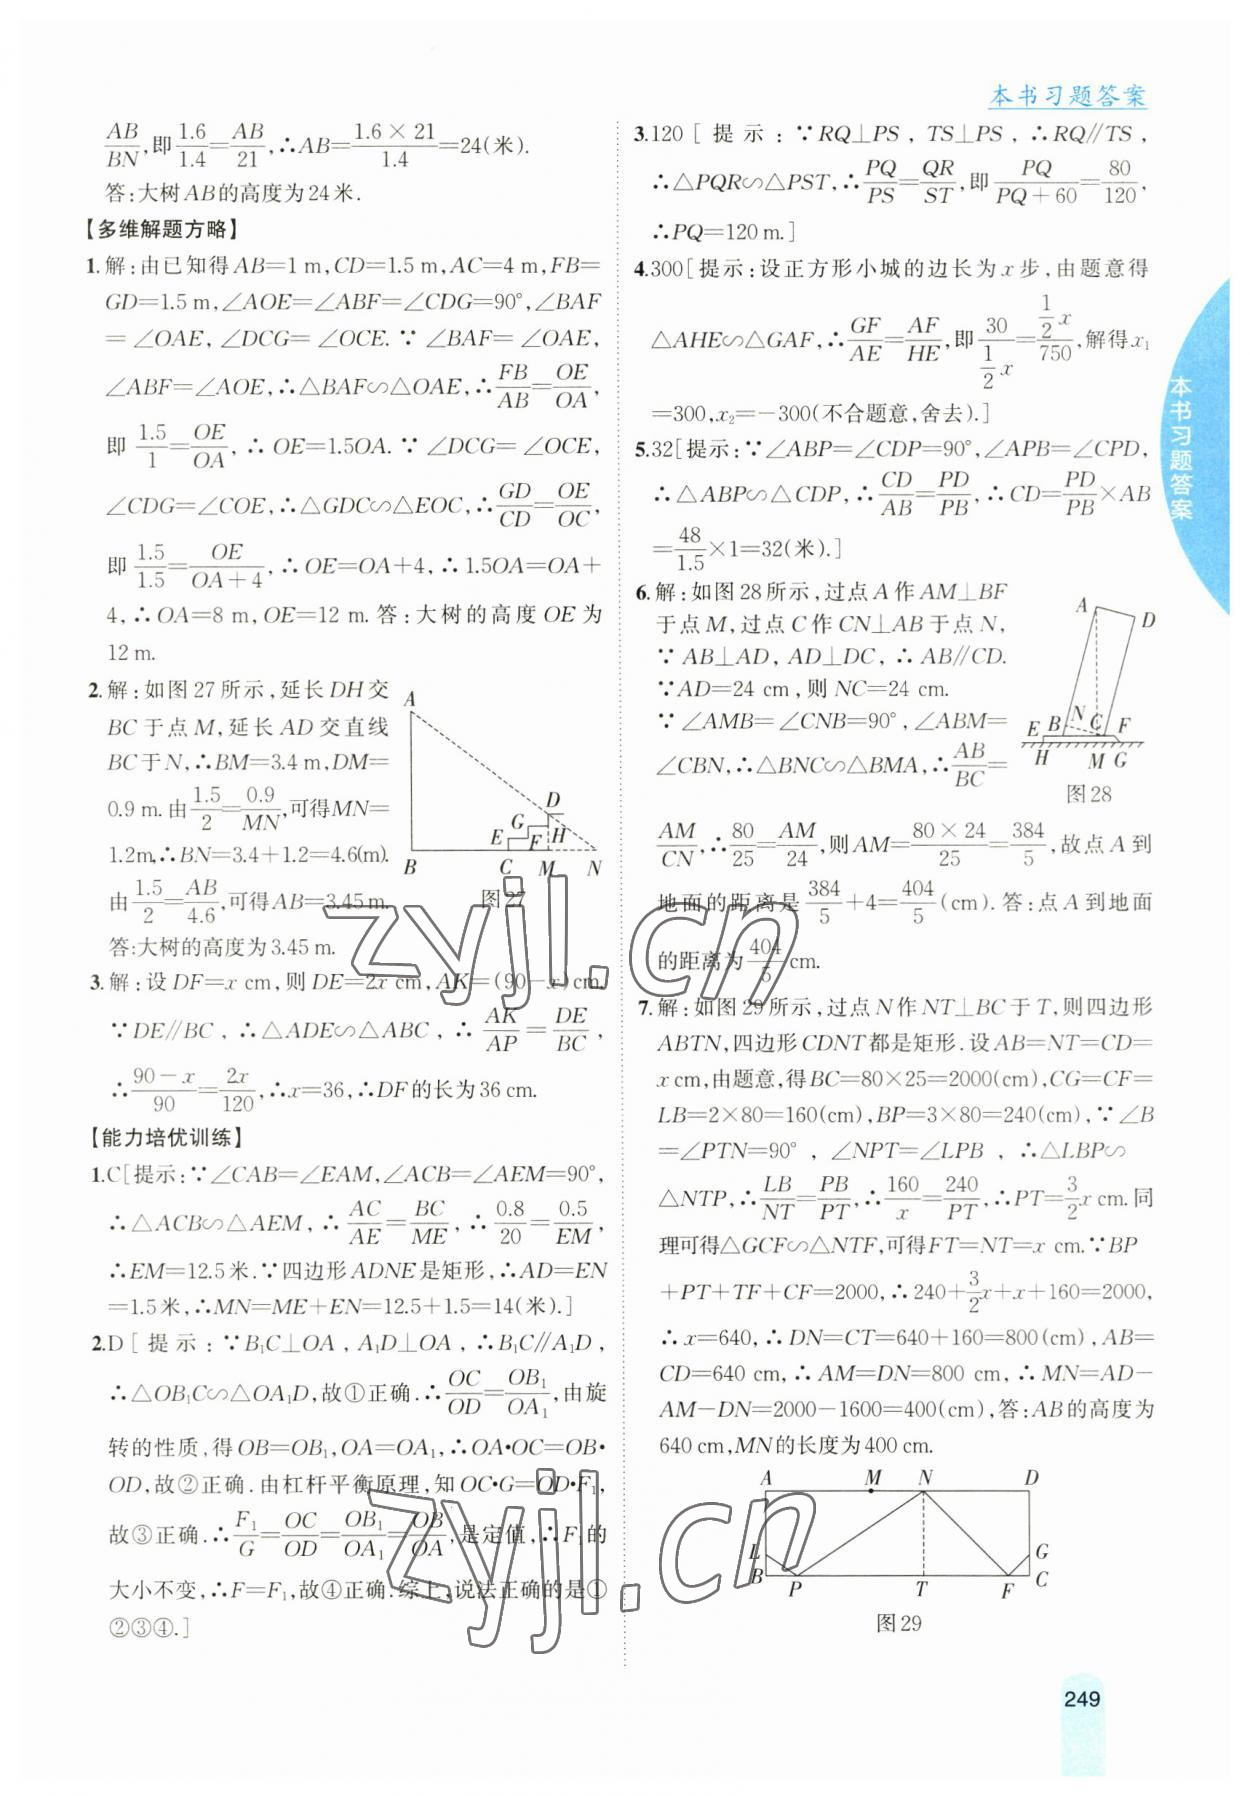 本书习题答案
AB/BN,即1.6/1.4=AB/21,∴AB=(1.6×21)/1.4=24(米).
答:大树AB的高度为24米.
【多维解题方略】
1.解:由已知得AB=1 m,CD=1.5 m,AC=4 m,FB=
GD=1.5 m,∠AOE=∠ABF=∠CDG=90°,∠BAF
=∠OAE,∠DCG=∠OCE.∵∠BAF=∠OAE,
∠ABF=∠AOE,∴△BAF∽△OAE,∴FB/AB=OE/OA,
即1.5/1=OE/OA,∴OE=1.5OA.∵∠DCG=∠OCE,
∠CDG=∠COE,∴△GDC∽△EOC,∴GD/CD=OE/OC,
即1.5/1.5=OE/(OA+4),∴OE=OA+4,∴1.5OA=OA+
4,∴OA=8 m,OE=12 m.答:大树的高度OE为
12 m.
2.解:如图27所示,延长DH交
BC于点M,延长AD交直线
BC于N,∴BM=3.4 m,DM=
0.9 m.由1.5/2=0.9/MN,可得MN=
1.2m,∴BN=3.4+1.2=4.6(m).
由1.5/2=AB/4.6,可得AB=3.45 m.
答:大树的高度为3.45 m.
A
D
G
E
F
H
B
C
M
N
图27
3.解:设DF=x cm,则DE=2x cm,AK=(90-x)cm,
∵DE∥BC,∴△ADE∽△ABC,∴AK/AP=DE/BC,
∴(90-x)/90=2x/120,∴x=36,∴DF的长为36 cm.
【能力培优训练】
1.C[提示:∵∠CAB=∠EAM,∠ACB=∠AEM=90°,
∴△ACB∽△AEM,∴AC/AE=BC/ME,∴0.8/20=0.5/EM,
∴EM=12.5米.∵四边形ADNE是矩形,∴AD=EN
=1.5米,∴MN=ME+EN=12.5+1.5=14(米).]
2.D[提示:∵B₁C⊥OA,A₁D⊥OA,∴B₁C∥A₁D,
∴△OB₁C∽△OA₁D,故①正确.∴OC/OD=OB₁/OA₁,由旋
转的性质,得OB=OB₁,OA=OA₁,∴OA•OC=OB•
OD,故②正确.由杠杆平衡原理,知OC•G=OD•F₁,
故③正确.∴F₁/G=OC/OD=OB₁/OA₁=OB/OA,是定值,∴F₁的
大小不变,∴F=F₁,故④正确.综上,说法正确的是①
②③④.]
3.120[提示:∵RQ⊥PS,TS⊥PS,∴RQ∥TS,
∴△PQR∽△PST,∴PQ/PS=QR/ST,即PQ/(PQ+60)=80/120,
∴PQ=120 m.]
4.300[提示:设正方形小城的边长为x步,由题意得
△AHE∽△GAF,∴GF/AE=AF/HE,即30/(1/2 x)=(1/2 x)/750,解得x₁
=300,x₂=-300(不合题意,舍去).]
5.32[提示:∵∠ABP=∠CDP=90°,∠APB=∠CPD,
∴△ABP∽△CDP,∴CD/AB=PD/PB,∴CD=PD/PB×AB
=48/1.5×1=32(米).]
6.解:如图28所示,过点A作AM⊥BF
于点M,过点C作CN⊥AB于点N,
∵AB⊥AD,AD⊥DC,∴AB∥CD.
∵AD=24 cm,则NC=24 cm.
∵∠AMB=∠CNB=90°,∠ABM=
∠CBN,∴△BNC∽△BMA,∴AB/BC=
A
D
E
B
N
C
F
H
M
G
图28
AM/CN,∴80/25=AM/24,则AM=(80×24)/25=384/5,故点A到
地面的距离是384/5+4=404/5(cm).答:点A到地面
的距离为404/5cm.
7.解:如图29所示,过点N作NT⊥BC于T,则四边形
ABTN,四边形CDNT都是矩形.设AB=NT=CD=
x cm,由题意,得BC=80×25=2000(cm),CG=CF=
LB=2×80=160(cm),BP=3×80=240(cm),∵∠B
=∠PTN=90°,∠NPT=∠LPB,∴△LBP∽
△NTP,∴LB/NT=PB/PT,∴160/x=240/PT,∴PT=3/2 x cm.同
理可得△GCF∽△NTF,可得FT=NT=x cm.∵BP
+PT+TF+CF=2000,∴240+3/2 x+x+160=2000,
∴x=640,∴DN=CT=640+160=800(cm),AB=
CD=640 cm,∴AM=DN=800 cm,∴MN=AD-
AM-DN=2000-1600=400(cm),答:AB的高度为
640 cm,MN的长度为400 cm.
A
M
N
D
L
G
B
P
T
F
C
图29
本书习题答案
zyjl.cn
zyjl.cn
249